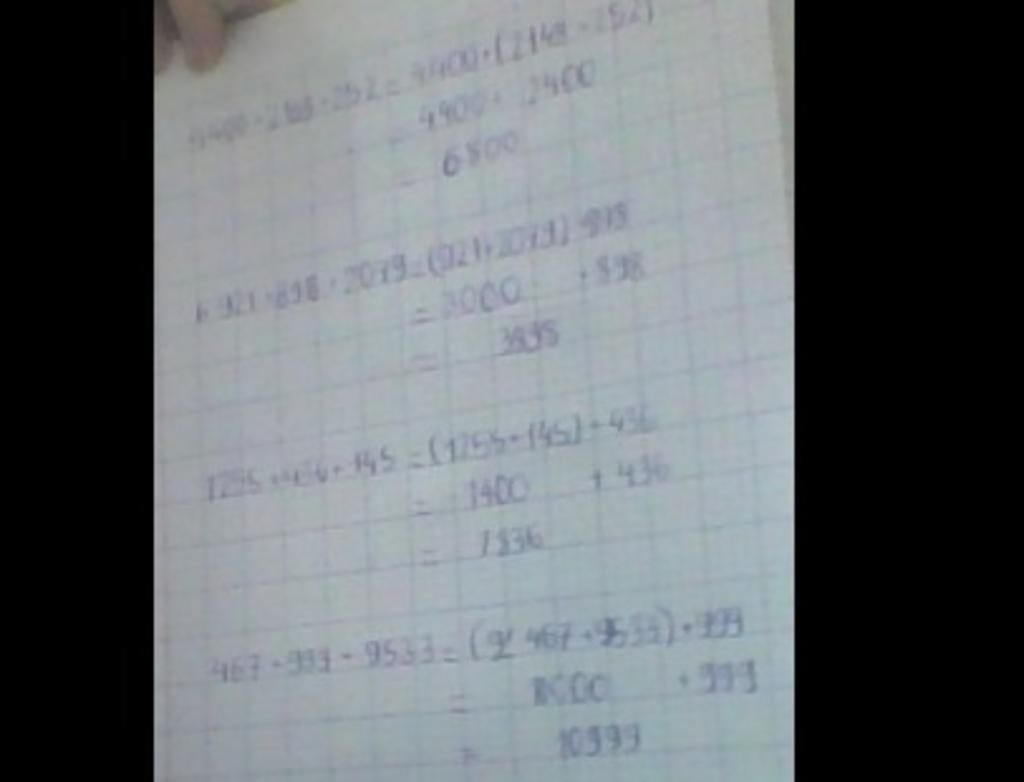 4400+2148+252=4400+(2148+252)
= 4400+ 2400
= 6800
b 921+898+2079=(921+2079)+898
= 3000 +898
= 3898
1255+436+145=(1255+145)+436
= 1400 + 436
= 1836
467+999+9533=( 467+9533)+999
= 10000 +999
= 10999